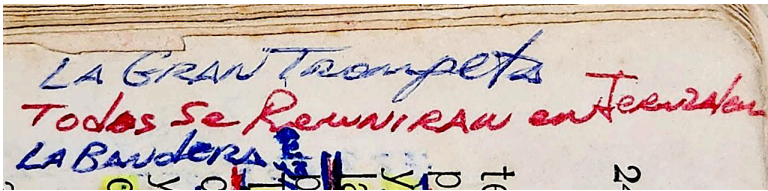 LA GRAN Trompeta
Todos Se Reuniran en Jeruzalen
LA BANDERA